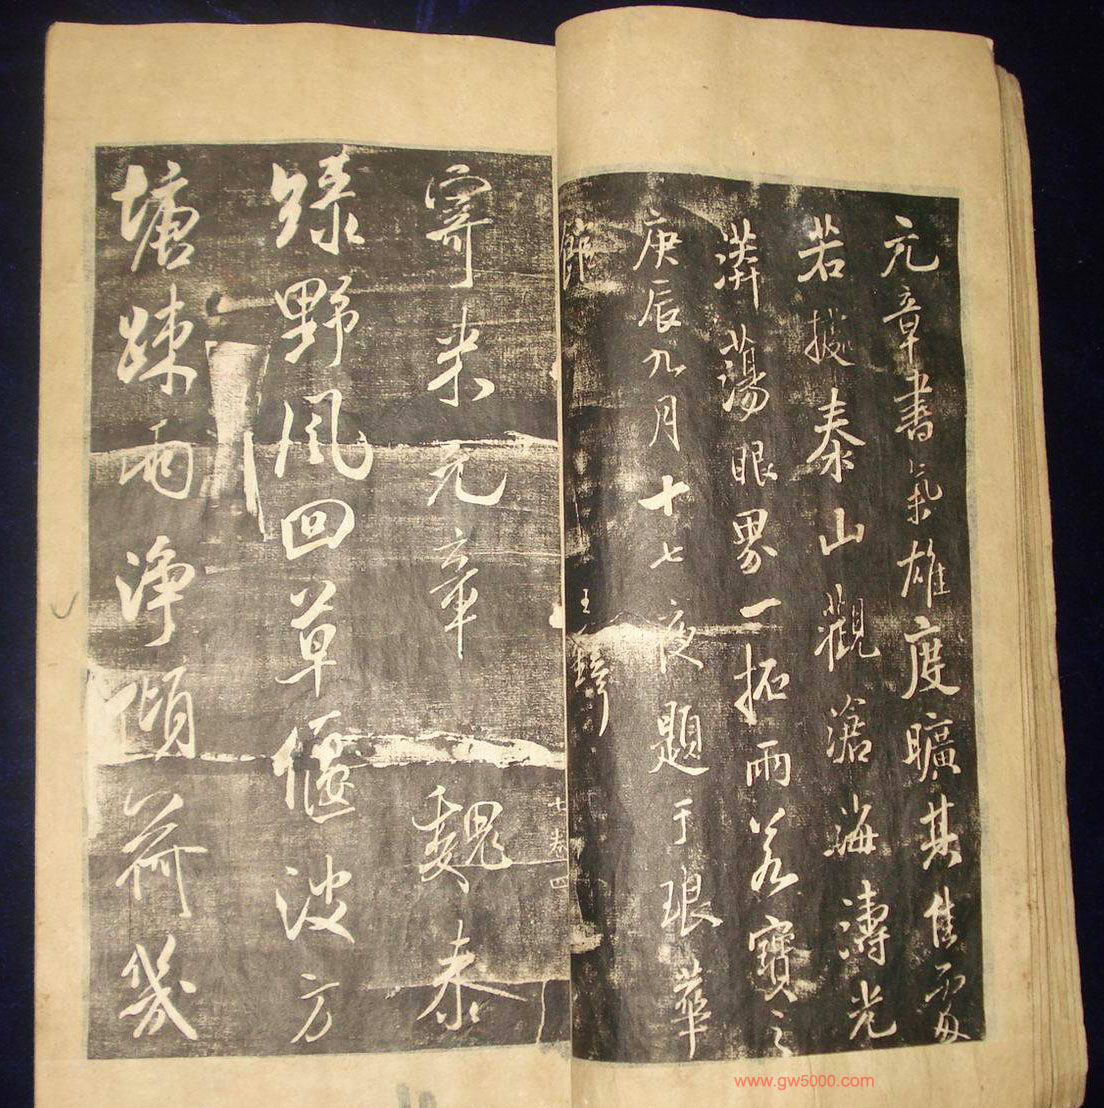 元章書氣雄度曠其佳處
若泰山觀滄海濤光
漭蕩眼界一拓雨若寶之
庚辰九月十七夜題于琅華
館 王鐸
七卷四
寄米元章 魏泰
綠野風回草偃波方
塘疎雨淨傾荷幾
www.gw5000.com